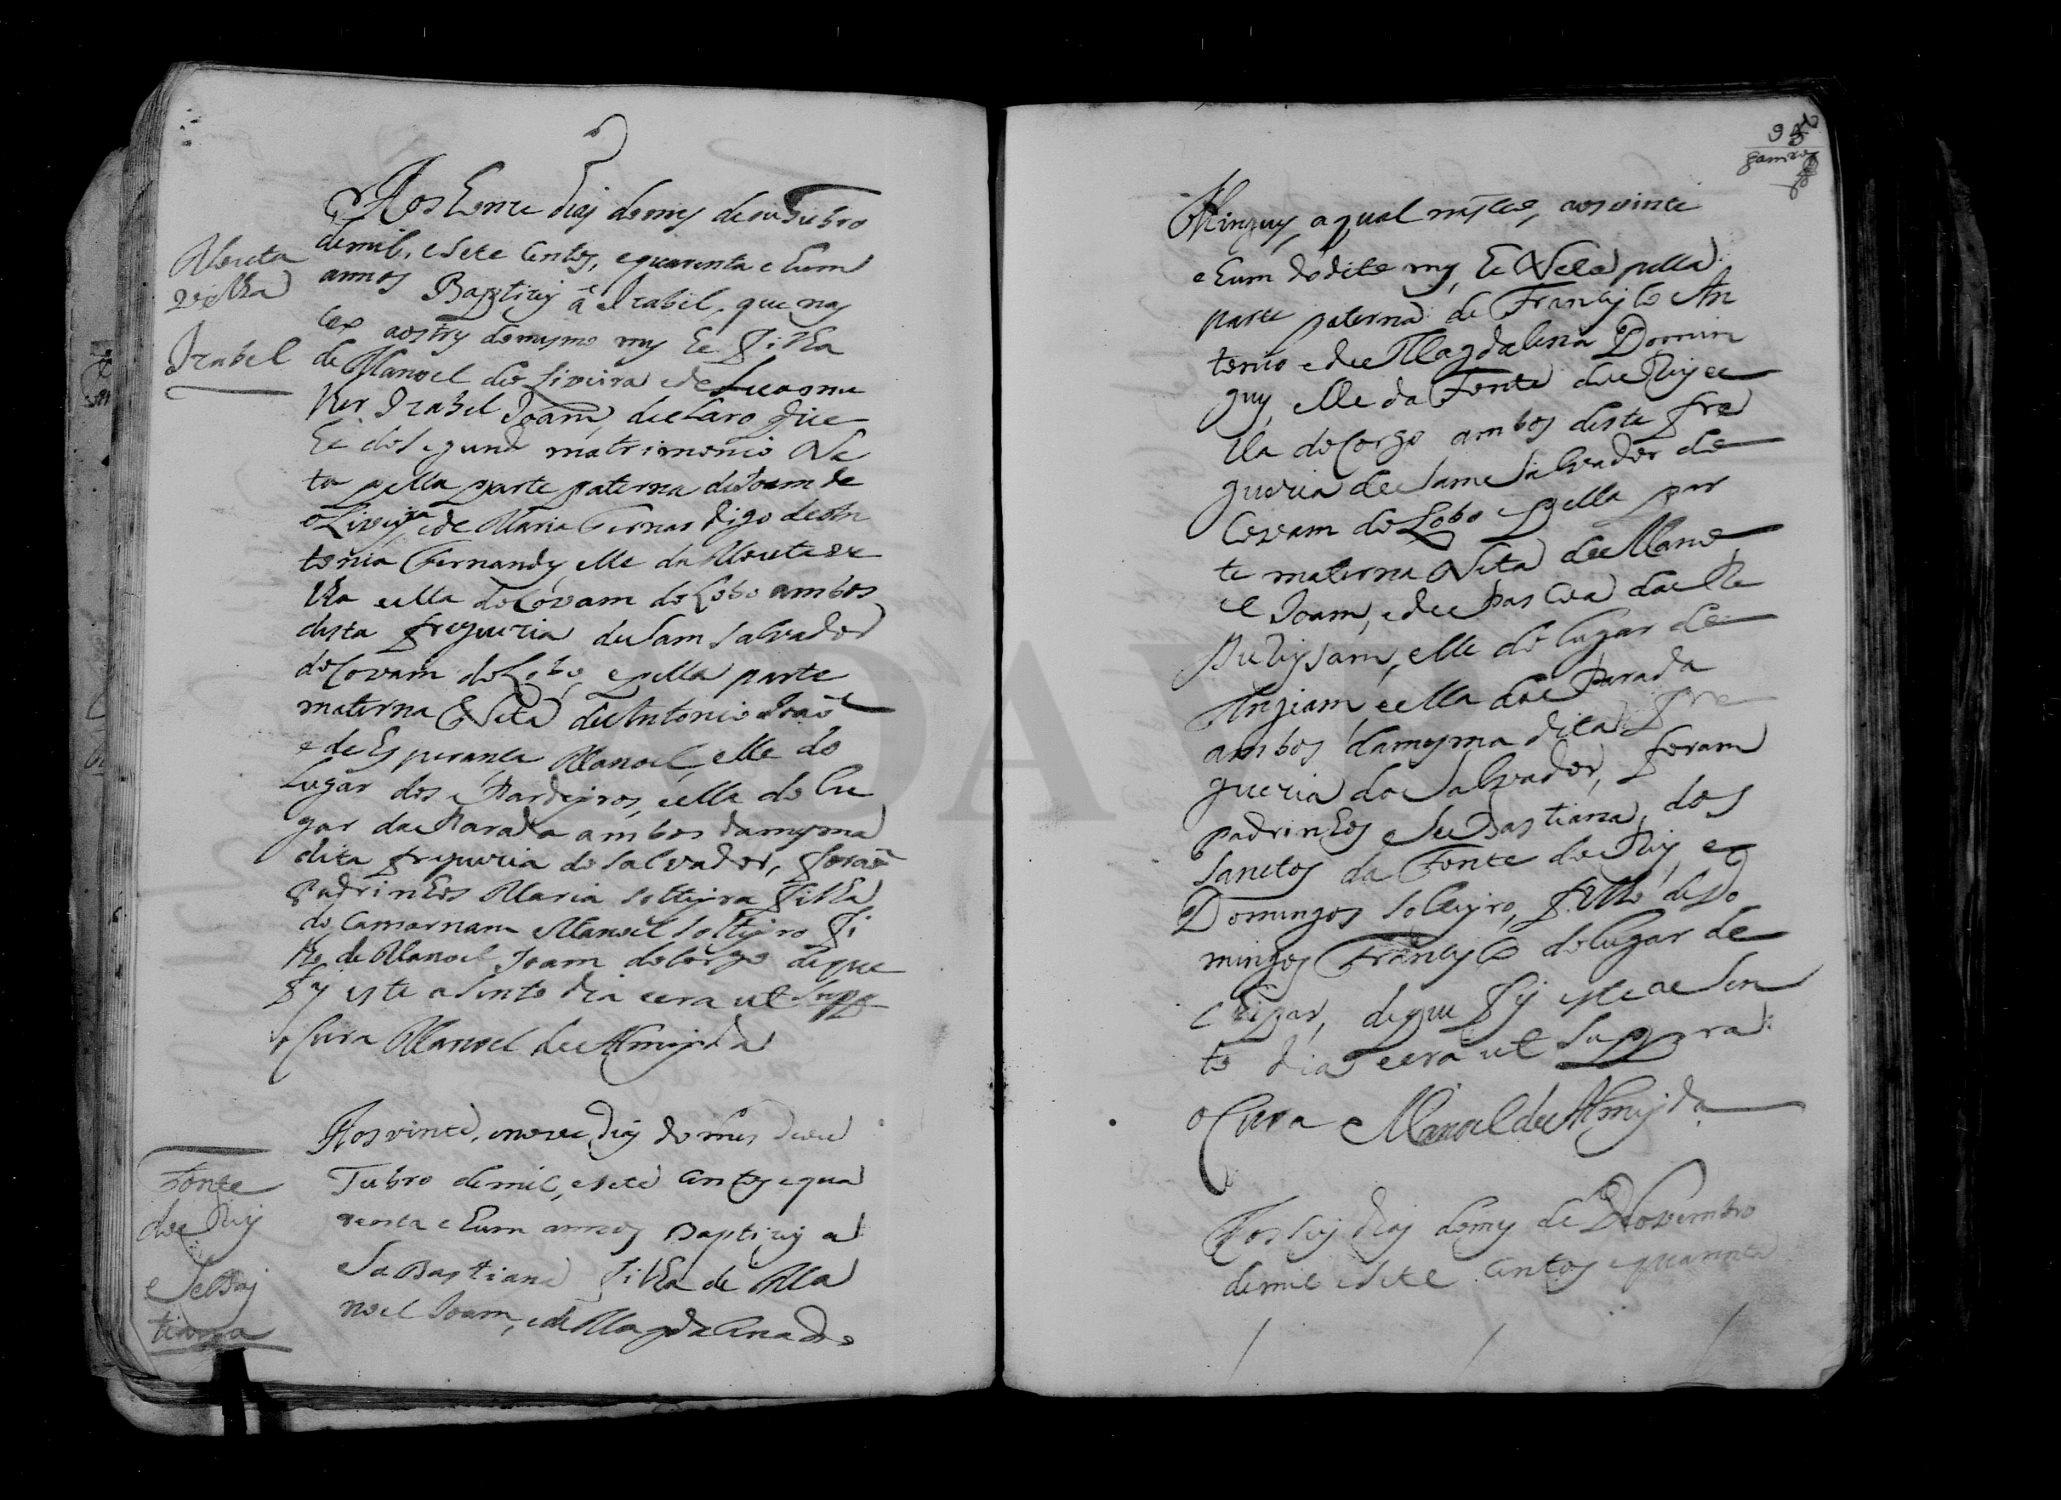 Mouta
Velha
Izabel
Aos honze dias do mes de outubro
de mil, e sete centos, e quarenta e hum
annos Baptizey a Izabel, que nas
ceo aos tres do mesmo mes he filha
de Manoel de Oliveira e de sua mu
lher Izabel Joam, declaro que
he do segundo matrimonio Ne
ta pella parte paterna de Joam de
Oliveira e de Maria Fernan digo de An
tonia Fernandes elle da Mouta ve
lha e ella do Covam do Lobo ambos
desta freguezia de Sam Salvador
do Covam do Lobo, e pella parte
materna Neta de Antonio Joaõ
e de Esperança Manoel, elle do
lugar dos Pardeyros, e ella do lu
gar da Parada ambos da mesma
dita freguezia do Salvador, foraõ
Padrinhos Maria solteyra filha
de Camarnam e Manoel solteyro fi
lho de Manoel Joam do Corgo de que
fis este asento dia e era ut supra
o Cura Manoel de Almeyda
Fonte
de Rey
e Sebas
tiana
Aos vinte, e nove dias do mes de ou
Tubro de mil, e sete centos e qua
renta e hum annos Baptizey a
Sabastiana filha de Ma
noel Joam, e de Magdalena do
95
Mingues, a qual nasceo, aos vinte
e hum do dito mes, he Neta pella
parte paterna de Francisco An
tonio e de Magdalena Domin
gues, elle da Fonte de Rey e e
lla do Corgo ambos desta fre
guezia de Sam Salvador do
Covam do Lobo e pella par
te materna Neta de Mano
el Joam, e de Pascoa da Re
sureysam, elle do lugar de
Angiam, e ella da Parada
ambos da mesma dita fre
guezia do Salvador, foram
padrinhos Sebastiana dos
Sanctos da Fonte de Rey, e
Domingos solteyro, filho de Do
mingos Francisco do lugar de
de que fis este asen
to dia e era ut supra
o Cura Manoel de Almeyda
Aos seis dias do mes de Novembro
de mil e sete centos e quarenta